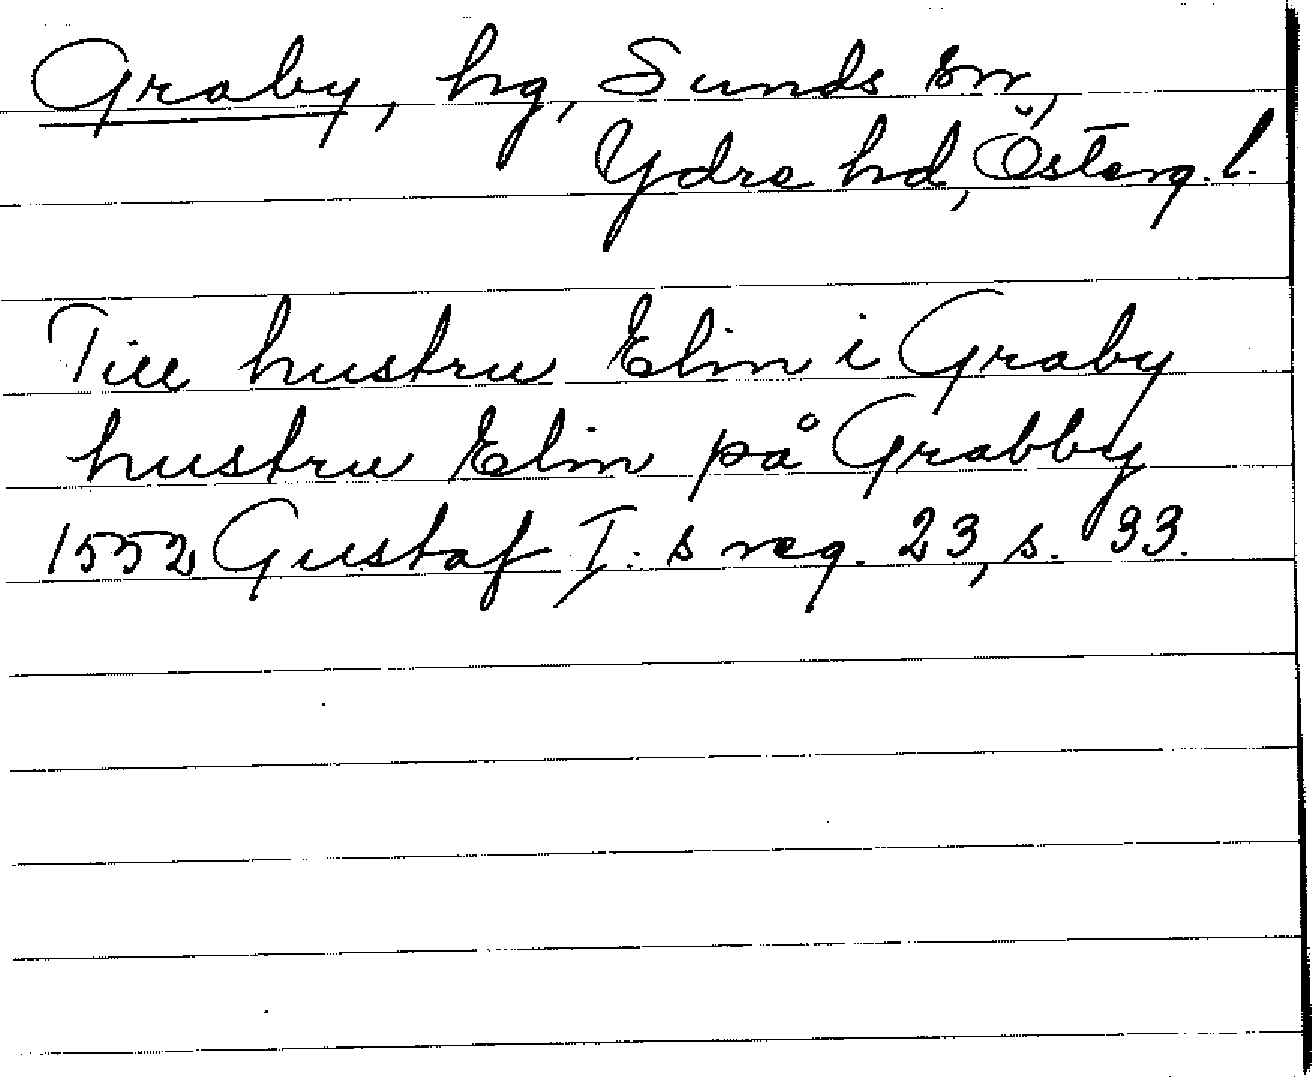 Graby, hg, Sunds sn,
Ydre hd, Österg. l.
Till hustru Elin i Graby
hustru Elin på Grabby
1552 Gustaf I:s reg. 23, s. 33.